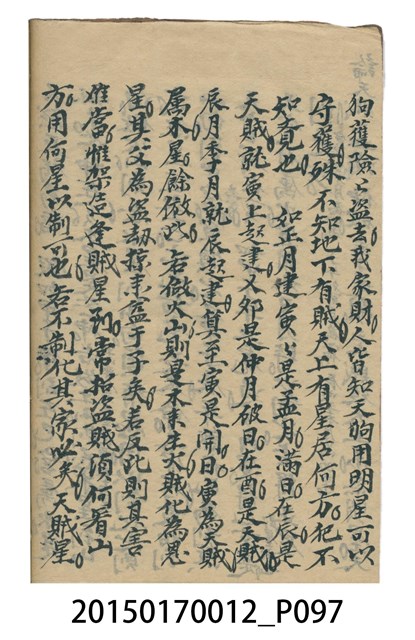 狗獲險々盜去我家財人皆知天狗用明星可以
守獲殊不知地下有賊天上有星居何方犯不
知竟也 如正月建寅々是孟月滿日在辰是
天賊就寅上起建又卯是仲月破日在酉是天賊
辰月季月就辰起建算至寅是開日寅為天賊
属木星餘倣此 若做火山則是木來生火賊化為恩
星其父為盜劫掠來盜于子矣若反此則其害
难當惟架造逢賊星到常招盜賊須何看山
方用何星以制可也若不制化其家必矣天賊星
20150170012_P097